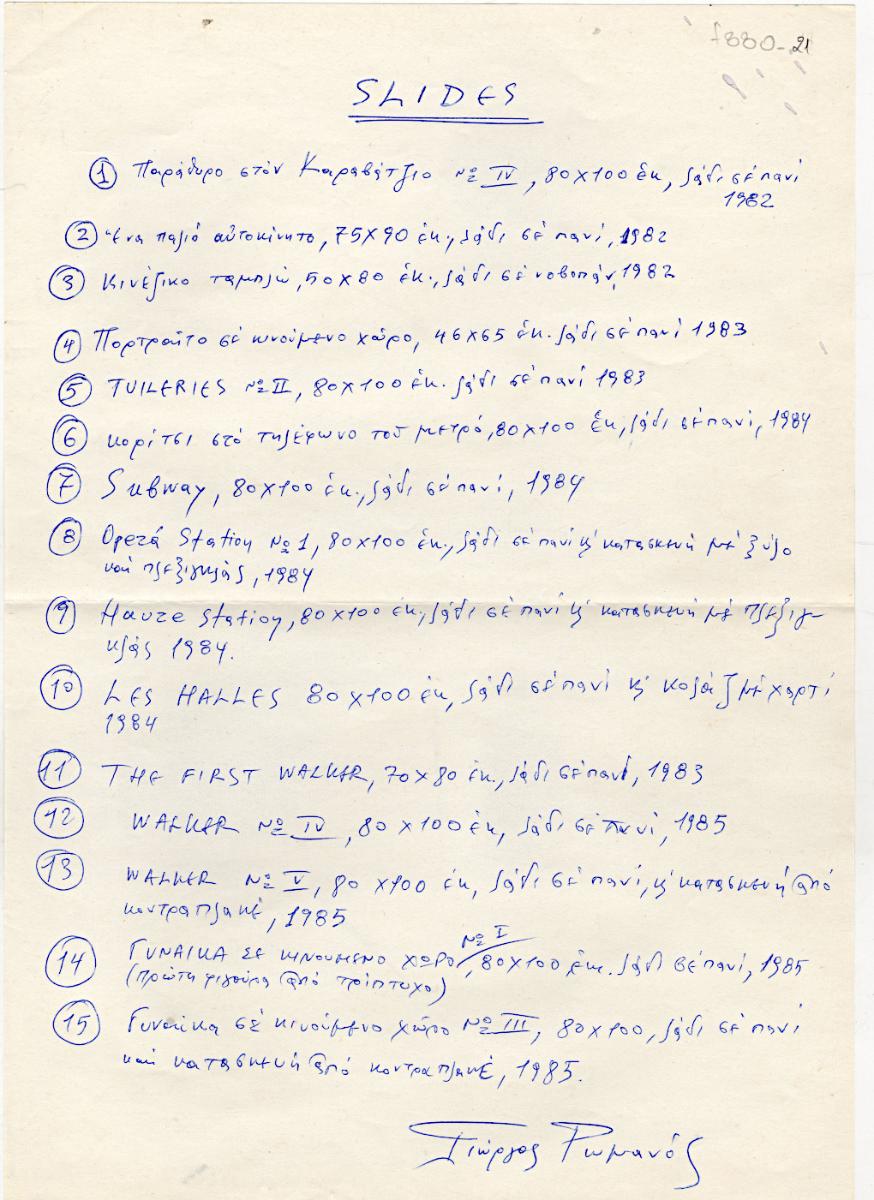 f880-21
SLIDES
1 Παράθυρο στόν Καραβάτζιο Νο IV, 80Χ100 ἐκ, λάδι σέ πανί
1982
2 Ἕνα παλιό αὐτοκίνητο, 75Χ90 ἐκ., λάδι σέ πανί, 1982
3 Κινέζικο ταμπλώ, 50Χ80 ἐκ., λάδι σέ νοβοπάν, 1982
4 Πορτραῖτο σέ κινούμενο χῶρο, 46Χ65 ἐκ. λάδι σέ πανί 1983
5 TUILERIES Νο II, 80Χ100 ἐκ. λάδι σέ πανί 1983
6 κορίτσι στό τηλέφωνο τοῦ μετρό, 80Χ100 ἐκ, λάδι σέ πανί, 1984
7 Subway, 80Χ100 ἐκ., λάδι σέ πανί, 1984
8 Operá Station No 1, 80Χ100 ἐκ., λάδι σέ πανί κ' κατασκευή μέ ξύλο
καί πλεξιγκλάς, 1984
9 Havre Station, 80Χ100 ἐκ., λάδι σέ πανί κ' κατασκευή μέ πλεξιγ-
κλάς 1984.
10 LES HALLES 80Χ100 ἐκ, λάδι σέ πανί κ' κολάζ μέ χαρτί
1984
11 THE FIRST WALKER, 70Χ80 ἐκ., λάδι σέ πανί, 1983
12 WALKER No IV, 80Χ100 ἐκ, λάδι σέ πανί, 1985
13 WALKER No V, 80Χ100 ἐκ, λάδι σέ πανί, κ' κατασκευή ἀπό
κοντραπλακέ, 1985
14 ΓΥΝΑΙΚΑ ΣΕ ΚΙΝΟΥΜΕΝΟ ΧΩΡΟ No I, 80Χ100 ἐκ. λάδι σέ πανί, 1985
(πρώτη φιγούρα ἀπό τρίπτυχο)
15 Γυναίκα σέ κινούμενο χῶρο No III, 80Χ100, λάδι σέ πανί
καί κατασκευή ἀπό κοντραπλακέ, 1985.
Γιώργος Ρωμανός